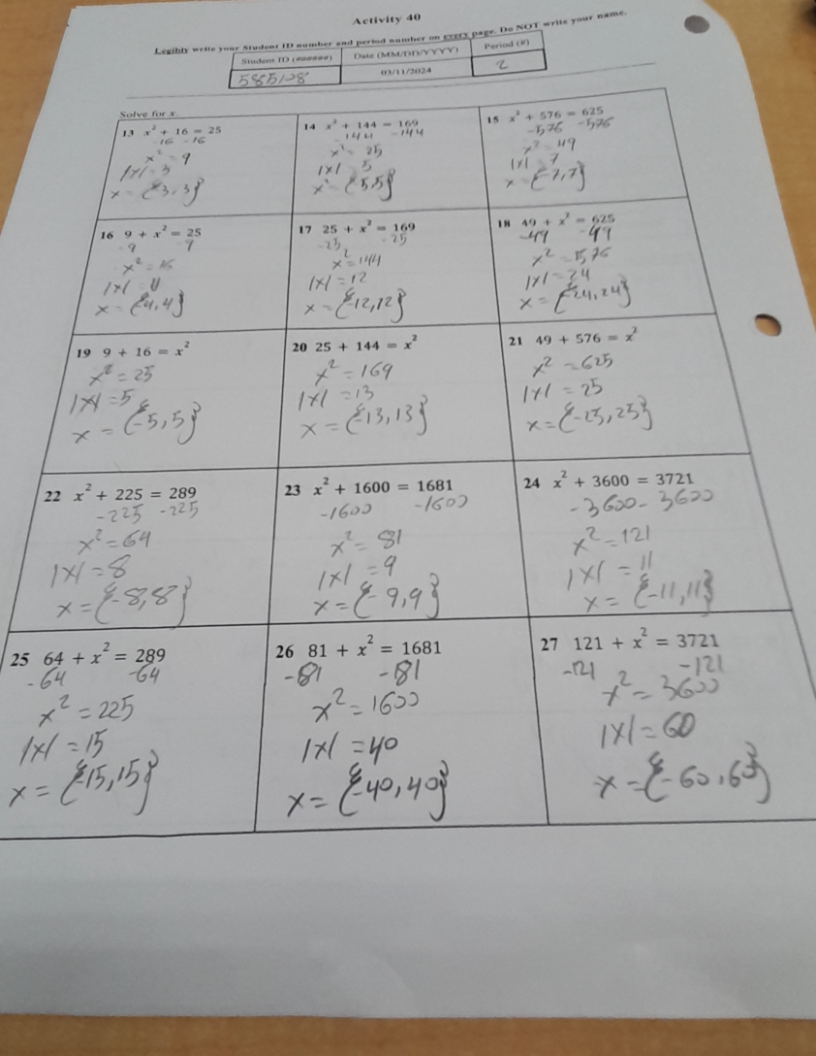 Activity 40
Legibly write your Student ID number and period number on every page. Do NOT write your name.
Student ID (######) Date (MM/DD/YYYY) Period (#)
585128 03/11/2024 2
Solve for x.
13 x² + 16 = 25
-16 -16
x² = 9
|x| = 3
x = {-3,3}
14 x² + 144 = 169
-144 -144
x² = 25
|x| = 5
x = {-5,5}
15 x² + 576 = 625
-576 -576
x² = 49
|x| = 7
x = {-7,7}
16 9 + x² = 25
-9 9
x² = 16
|x| = 4
x = {-4,4}
17 25 + x² = 169
-25 -25
x² = 144
|x| = 12
x = {-12,12}
18 49 + x² = 625
-49 -49
x² = 576
|x| = 24
x = {-24,24}
19 9 + 16 = x²
x² = 25
|x| = 5
x = {-5,5}
20 25 + 144 = x²
x² = 169
|x| = 13
x = {-13,13}
21 49 + 576 = x²
x² = 625
|x| = 25
x = {-25,25}
22 x² + 225 = 289
-225 -225
x² = 64
|x| = 8
x = {-8,8}
23 x² + 1600 = 1681
-1600 -1600
x² = 81
|x| = 9
x = {-9,9}
24 x² + 3600 = 3721
-3600 -3600
x² = 121
|x| = 11
x = {-11,11}
25 64 + x² = 289
-64 -64
x² = 225
|x| = 15
x = {-15,15}
26 81 + x² = 1681
-81 -81
x² = 1600
|x| = 40
x = {-40,40}
27 121 + x² = 3721
-121 -121
x² = 3600
|x| = 60
x = {-60,60}